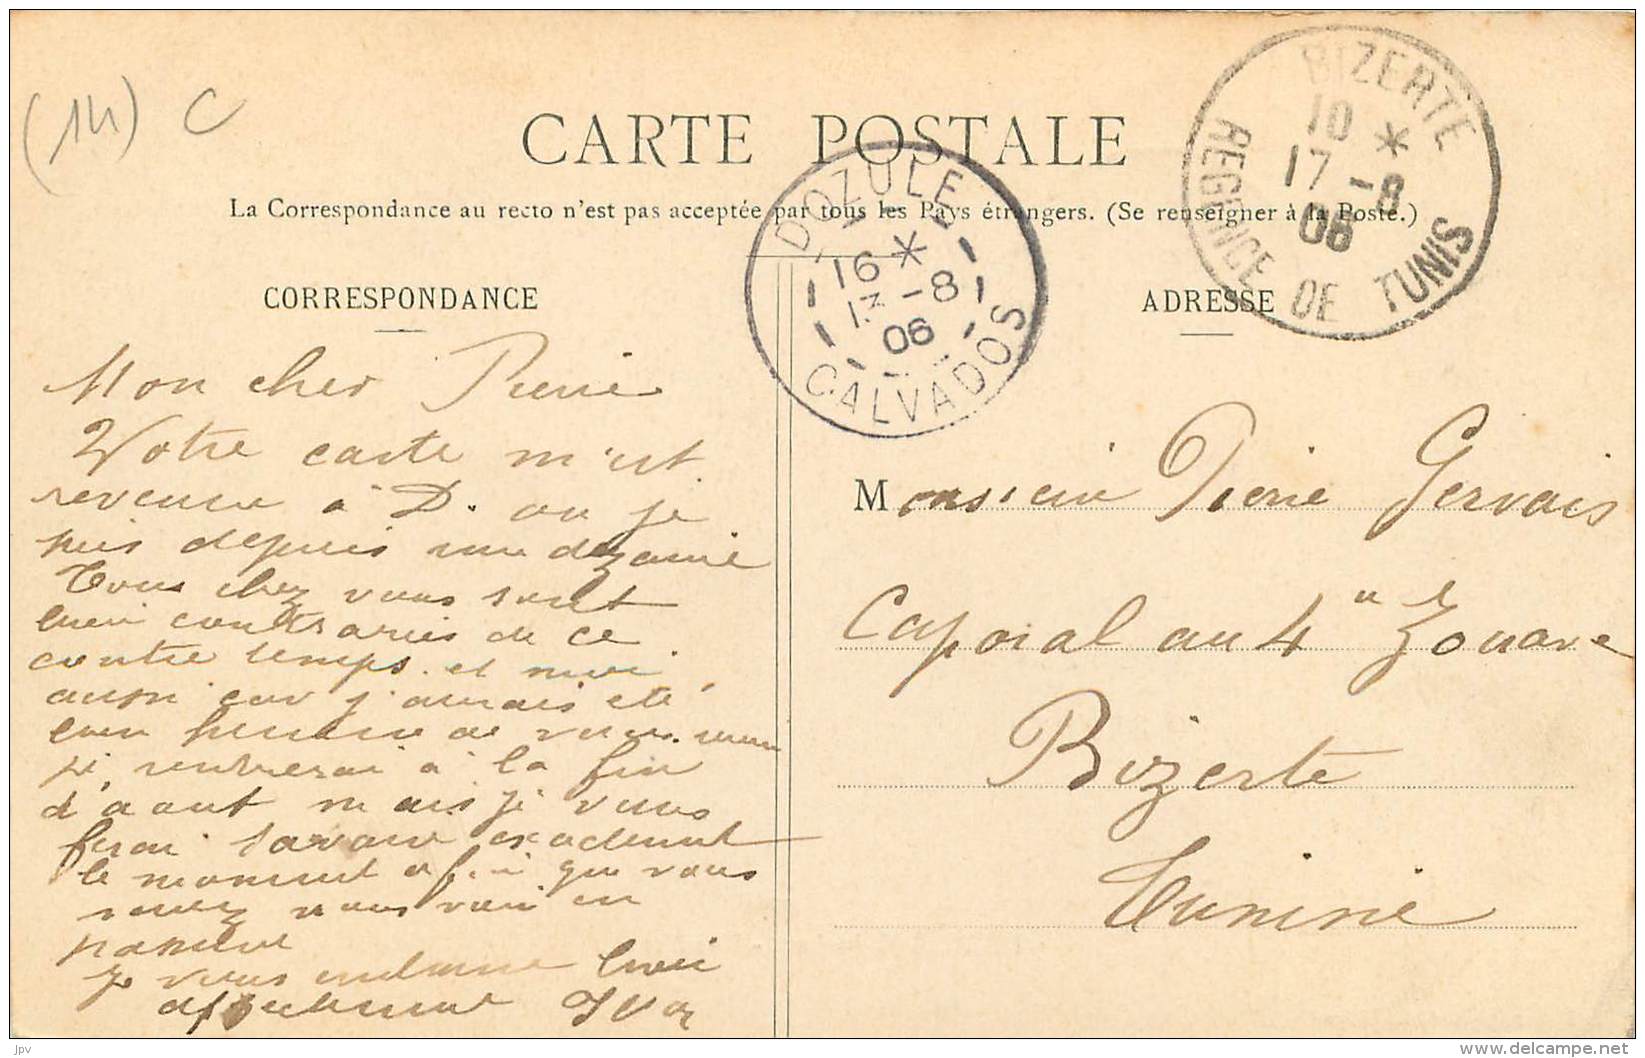 (14) C
CARTE POSTALE
La Correspondance au recto n'est pas acceptée par tous les Pays étrangers. (Se renseigner à la Poste.)
BIZERTE
10 *
17 -8
06
REGENCE DE TUNIS
DOZULE
16 *
13 -8
06
CALVADOS
CORRESPONDANCE
Mon cher Pierre
Votre carte m'est
revenue à D. ou je
suis depuis une dizaine
Tous chez vous sont
bien contrariés de ce
contre temps. et moi
aussi car j'aurais été
bien heureux de vous
je rentrerai à la fin
d'aout mais je vous
ferai savoir exactement
le moment afin que vous
venez nous voir en
passant
Je vous embrasse bien
affectueusement
ADRESSE
Monsieur Pierre Gervais
Caporal au 4e Zouave
Bizerte
Tunisie
jpv
delcampe.net